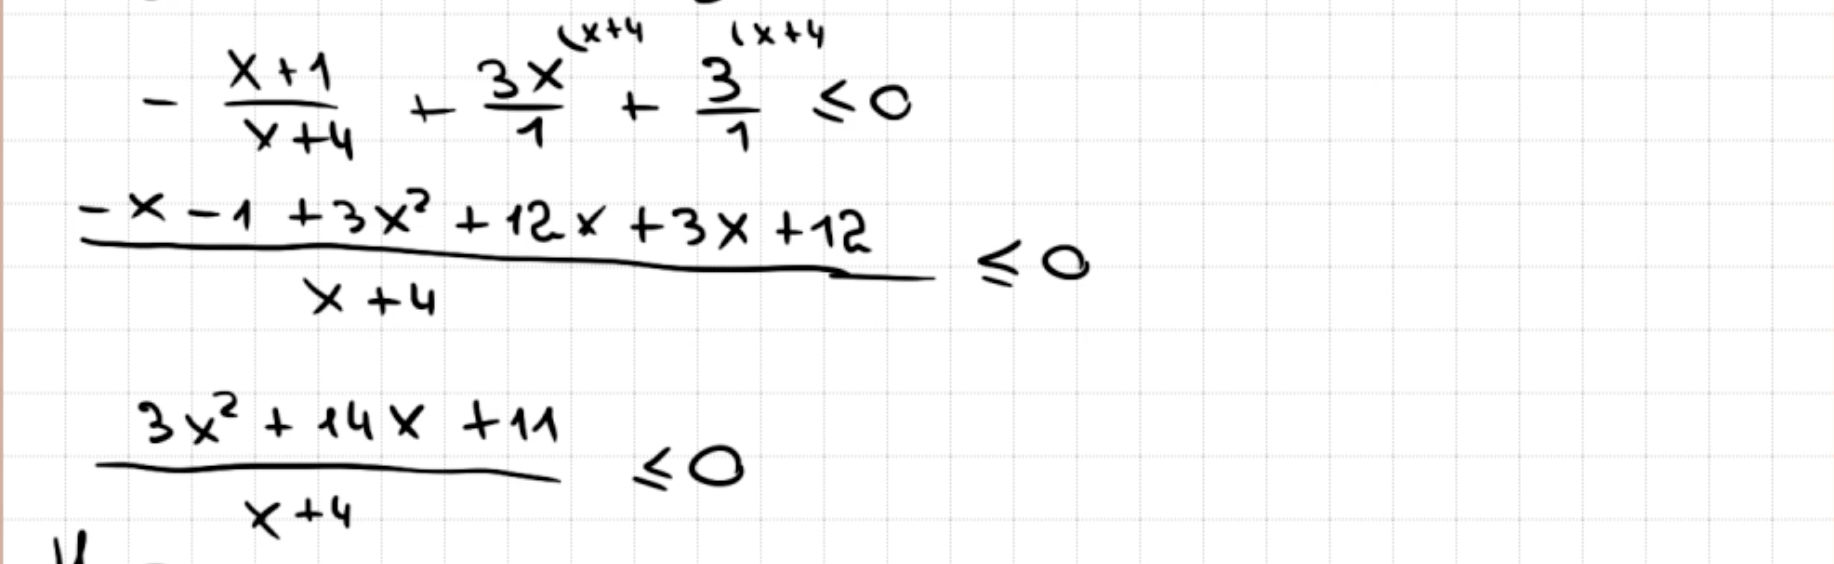 - (x+1)/(x+4) + 3x/1 (x+4 + 3/1 (x+4 ≤ 0
(-x - 1 + 3x² + 12x + 3x + 12)/(x + 4) ≤ 0
(3x² + 14x + 11)/(x+4) ≤ 0